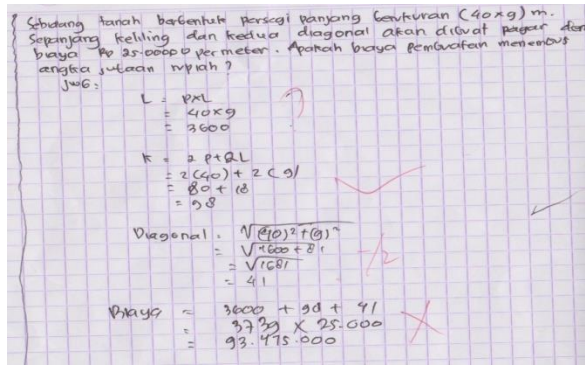 Sebidang tanah berbentuk persegi panjang berukuran (40×9) m.
Sepanjang keliling dan kedua diagonal akan dibuat pagar den
biaya Rp 25.000,00 per meter. Apakah biaya pembuatan menembus
angka jutaan rupiah?
Jwb:
L = P×L
= 40×9
= 3600
K = 2 P+2L
= 2(40) + 2(9)
= 80 + 18
= 98
Diagonal = √(40)² + (9)²
= √1600 + 81
= √1681
= 41
-1/2
Biaya = 3600 + 98 + 41
= 3739 × 25.000
= 93.475.000